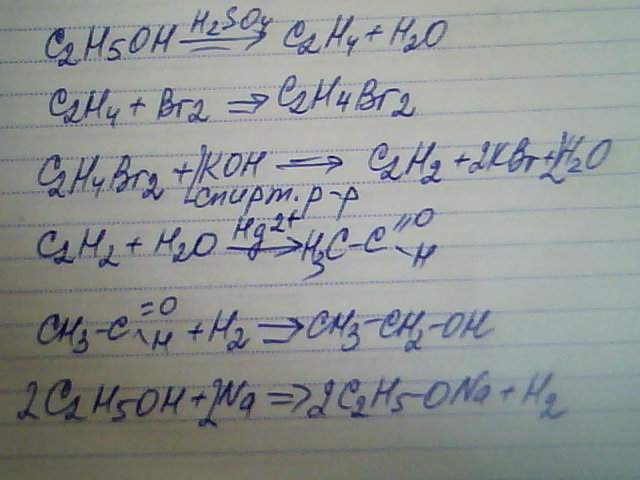 C2H5OH H2SO4⟶ C2H4 + H2O
C2H4 + Br2 ⇒ C2H4Br2
C2H4Br2 + 2KOH ⟹ C2H2 + 2KBr + 2H2O
спирт. р-р
C2H2 + H2O Hg2+⟶ H3C-C=O-H
CH3-C=O-H + H2 ⟹ CH3-CH2-OH
2C2H5OH + 2Na ⟹ 2C2H5-ONa + H2